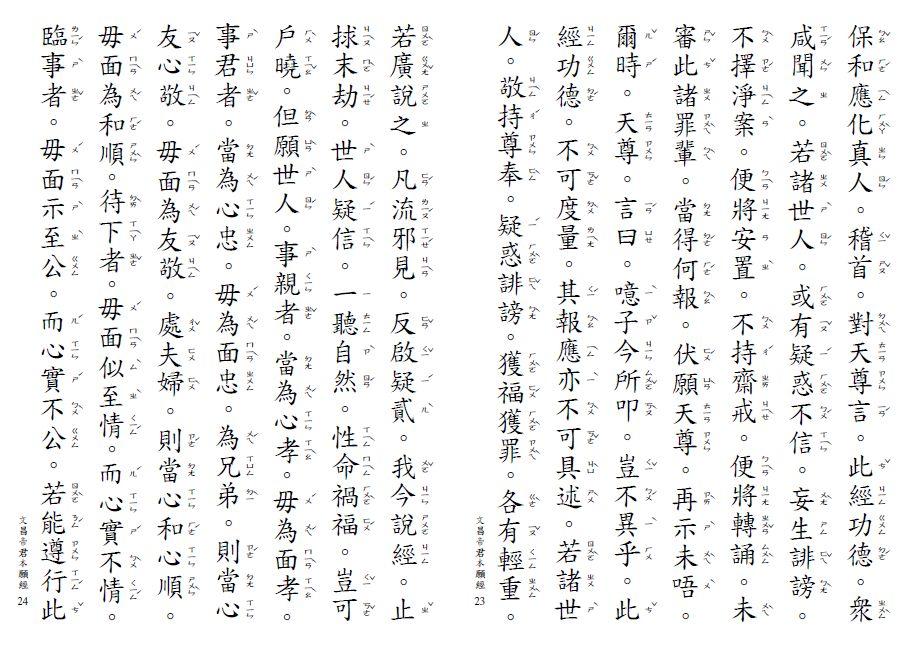 保和應化真人。稽首。對天尊言。此經功德。眾
咸聞之。若諸世人。或有疑惑不信。妄生誹謗。
不擇淨案。便將安置。不持齋戒。便將轉誦。未
審此諸罪輩。當得何報。伏願天尊。再示未唔。
爾時。天尊。言曰。噫子今所叩。豈不異乎。此
經功德。不可度量。其報應亦不可具述。若諸世
人。敬持尊奉。疑惑誹謗。獲福獲罪。各有輕重
文昌帝君本願經 23
若廣說之。凡流邪見。反啟疑貳。我今說經。止
捄末劫。世人疑信。一聽自然。性命禍福。豈可
戶曉。但願世人。事親者。當為心孝。毋為面孝。
事君者。當為心忠。毋為面忠。為兄弟。則當心
友心敬。毋面為友敬。處夫婦。則當心和心順。
毋面為和順。待下者。毋面似至情。而心實不情。
臨事者。毋面示至公。而心實不公。若能遵行此
文昌帝君本願經 24